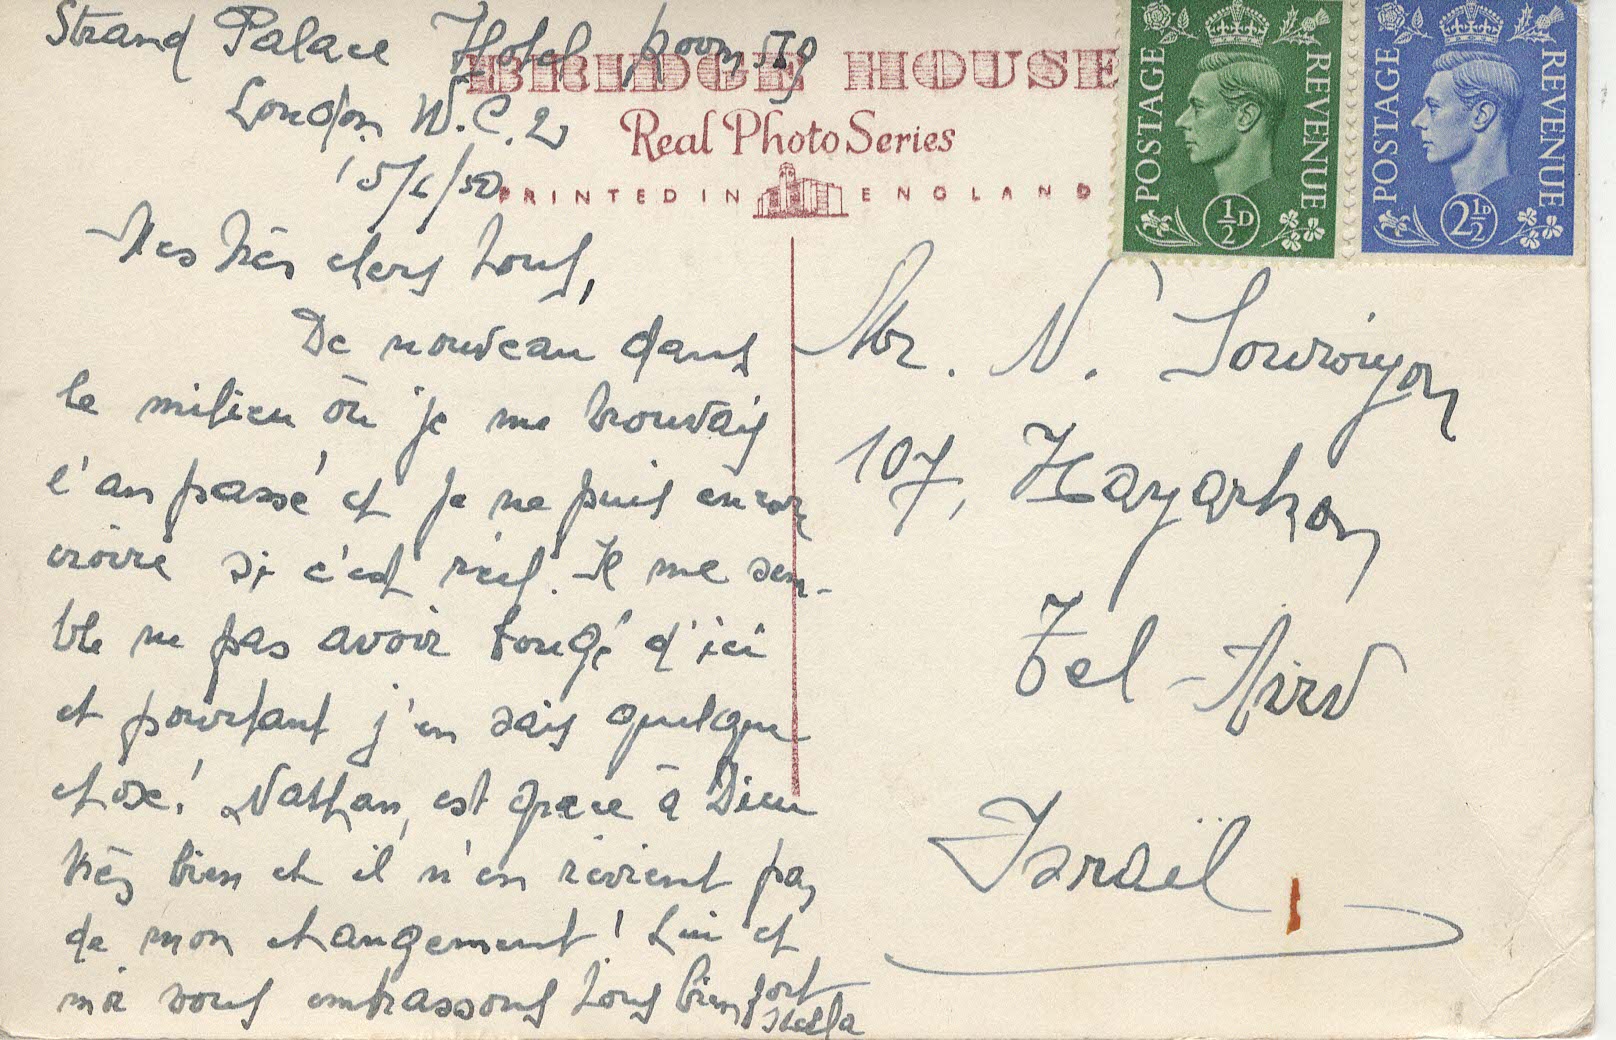 Strand Palace Hotel room 519
London W.C.2
15/6/50
Mes très chers tous,
De nouveau dans
le milieu où je me trouvais
l'an passé et je ne puis encore
croire si c'est réel. Il me sem-
ble ne pas avoir bougé d'ici
et pourtant j'en sais quelque
chose! Nathan, est grace à Dieu
très bien et il n'en revient pas
de mon changement! Lui et
moi vous embrassons tous bien fort
Stella
BRIDGE HOUSE
Real Photo Series
PRINTED IN ENGLAND
POSTAGE REVENUE
½D
POSTAGE REVENUE
2½D
Mr. N.
107, Hayarkon
Tel-Aviv
Israël